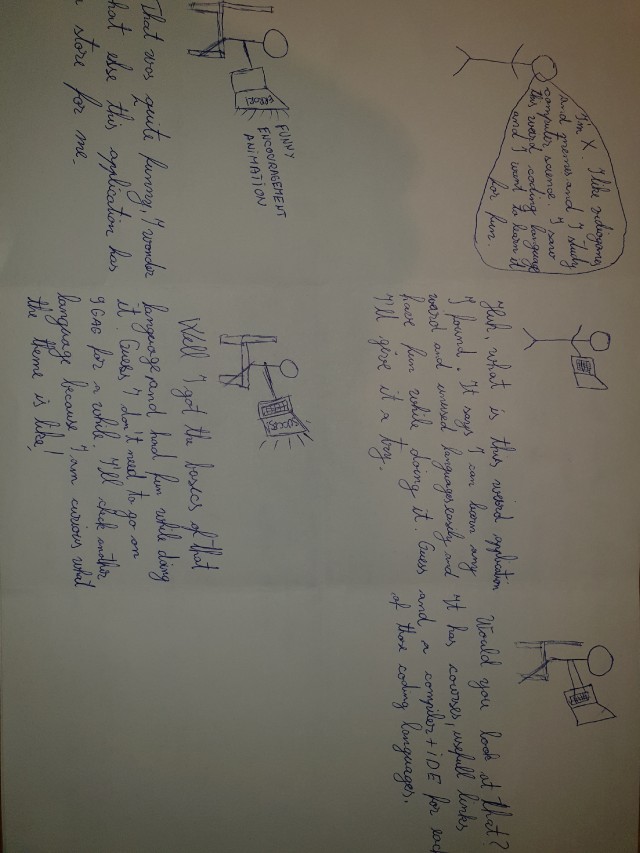 I'm X. I like vidiogames
and memes and I study
computer science. I saw
this weird coding language
and I want to learn it
for fun.
Huh, what is this weird application
I found. It says I can learn any
weird and unused languages easily and
have fun while doing it. Guess
I'll give it a try.
Would you look at that?
It has courses, usefull links
and a compiler+iDE for each
of those coding languages.
ERROR!
FUNNY
ENCOURAGEMENT
ANIMATION
That was quite funny, I wonder
hat else this application has
store for me.
Well I got the basics of that
language and had fun while doing
it. Guess I don't need to go on
9GAG for a while. I'll check another
language because I am curious what
the theme is like!